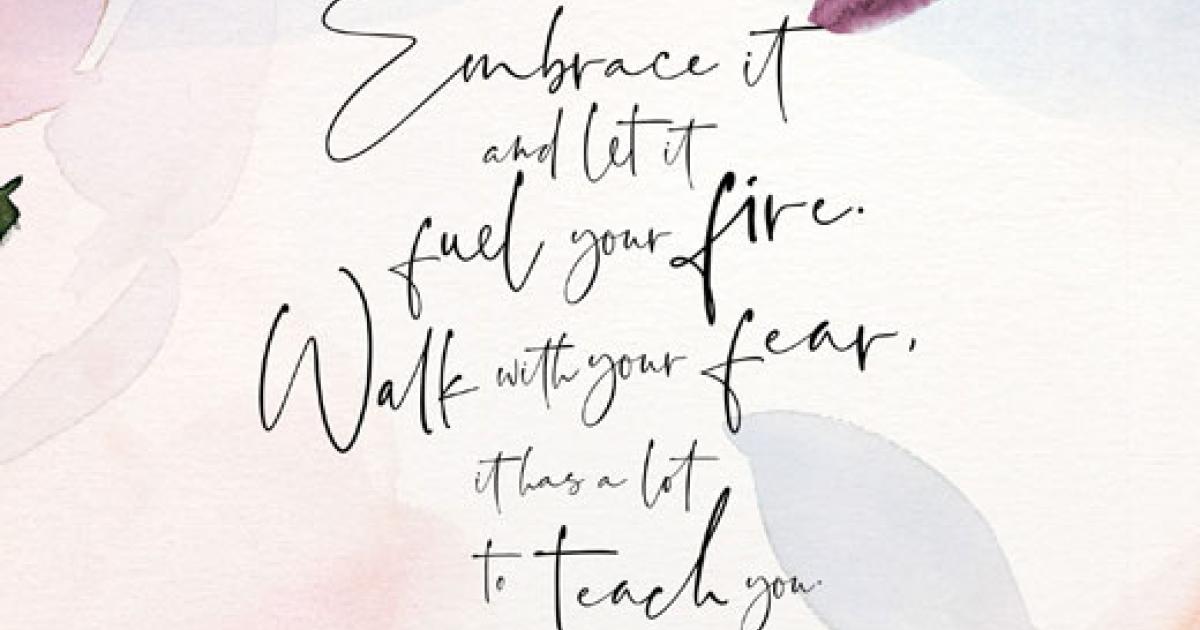 Embrace it
and let it
fuel your fire.
Walk with your fear,
it has a lot
to teach you.